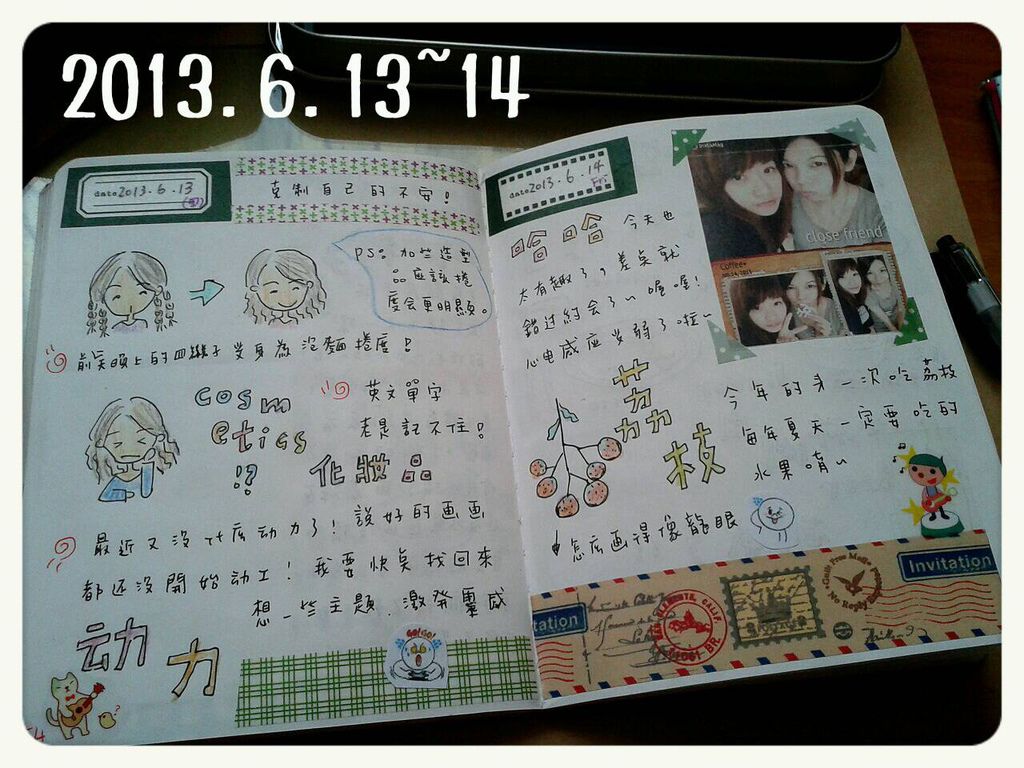 2013.6.13~14
date 2013.6.13
克制自己的不安!
PS: 加些造型
品應該捲
度會更明顯。
頭上的四
子变身為泡麵捲度!
cosm
etics
!?
英文單字
老是記不住!
化妝品
最近又沒什麼动力了! 說好的画画
都还沒開始动工! 我要快点找回來
想一些主題.激發靈感
动力
GO!GO!
date 2013.6.14
Fri
哈哈 今天也
太有趣了, 差点就
錯过約会了~喔喔!
心电感应变弱了啦~
close friend
Coffee+
荔枝
今年的头一次吃荔枝
每年夏天一定要吃的
水果唷~
怎麼画得像龍眼
tation
Invitation
CALIF.
No Reply